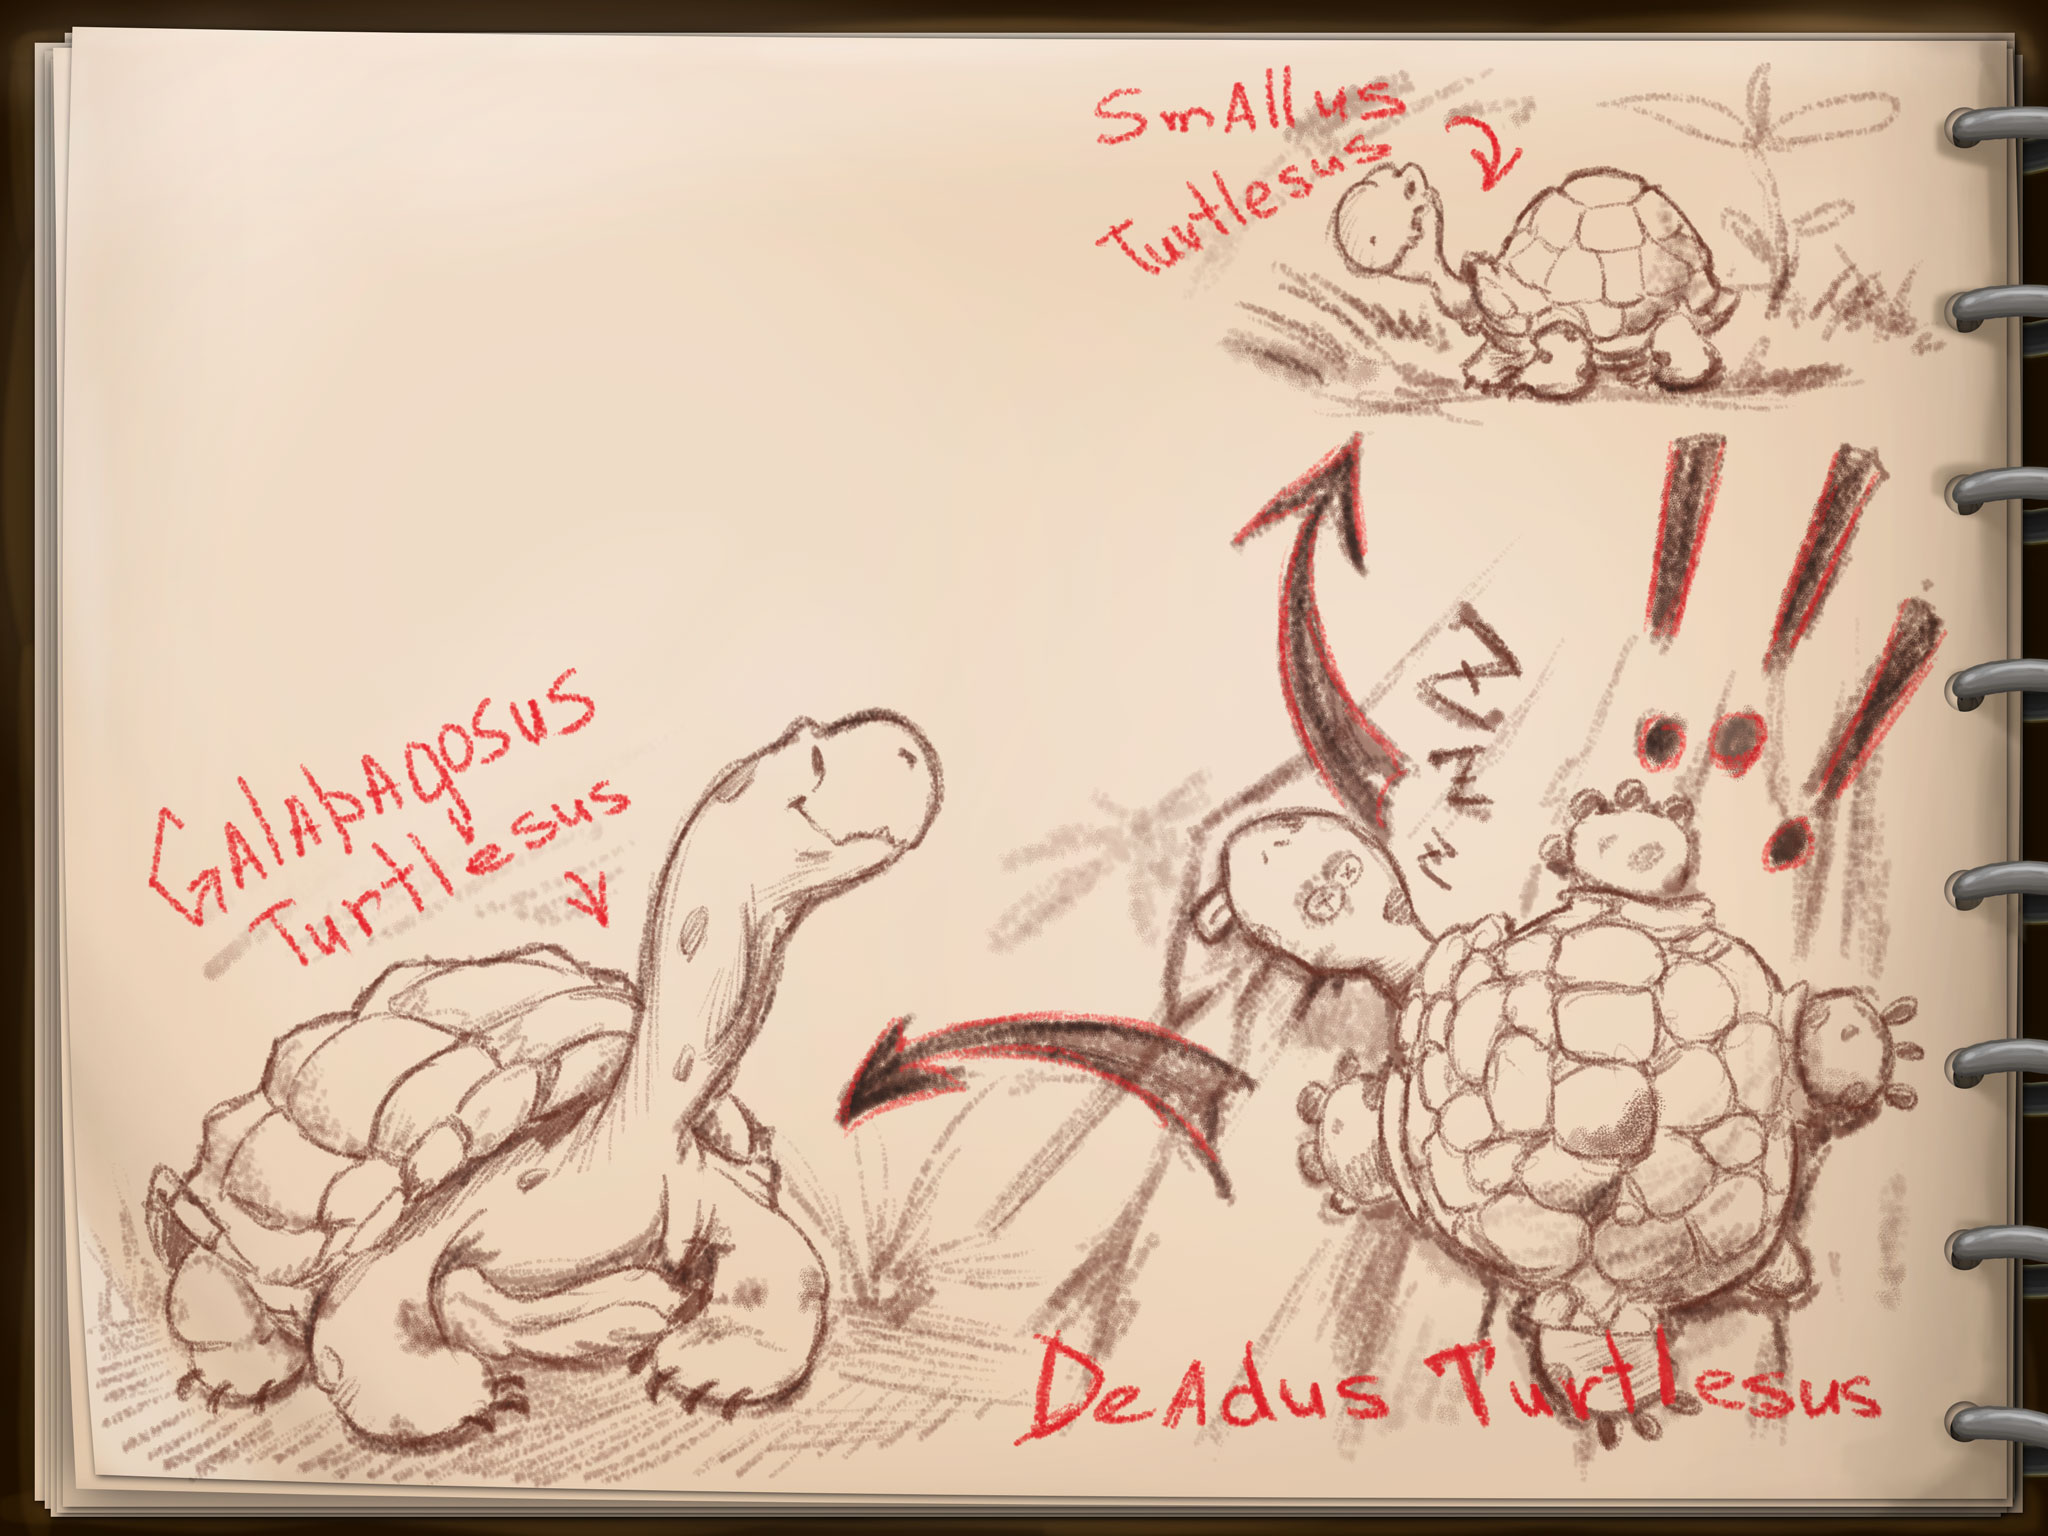 SmAllus
Turtlesus
GAlApAgosus
Turtlesus
Z
Z
Z
!!!
DeAdus Turtlesus